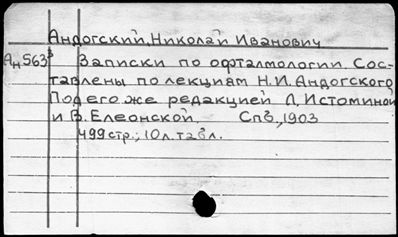 Андогский, Николай Иванович
Ан563³ Записки по офталмологии. Сос-
тавлены по лекциям Н.И. Андогского
Под его же редакцией Л. Истоминой
и В. Елеонской. Спб., 1903
499 стр.; 10 л. табл.